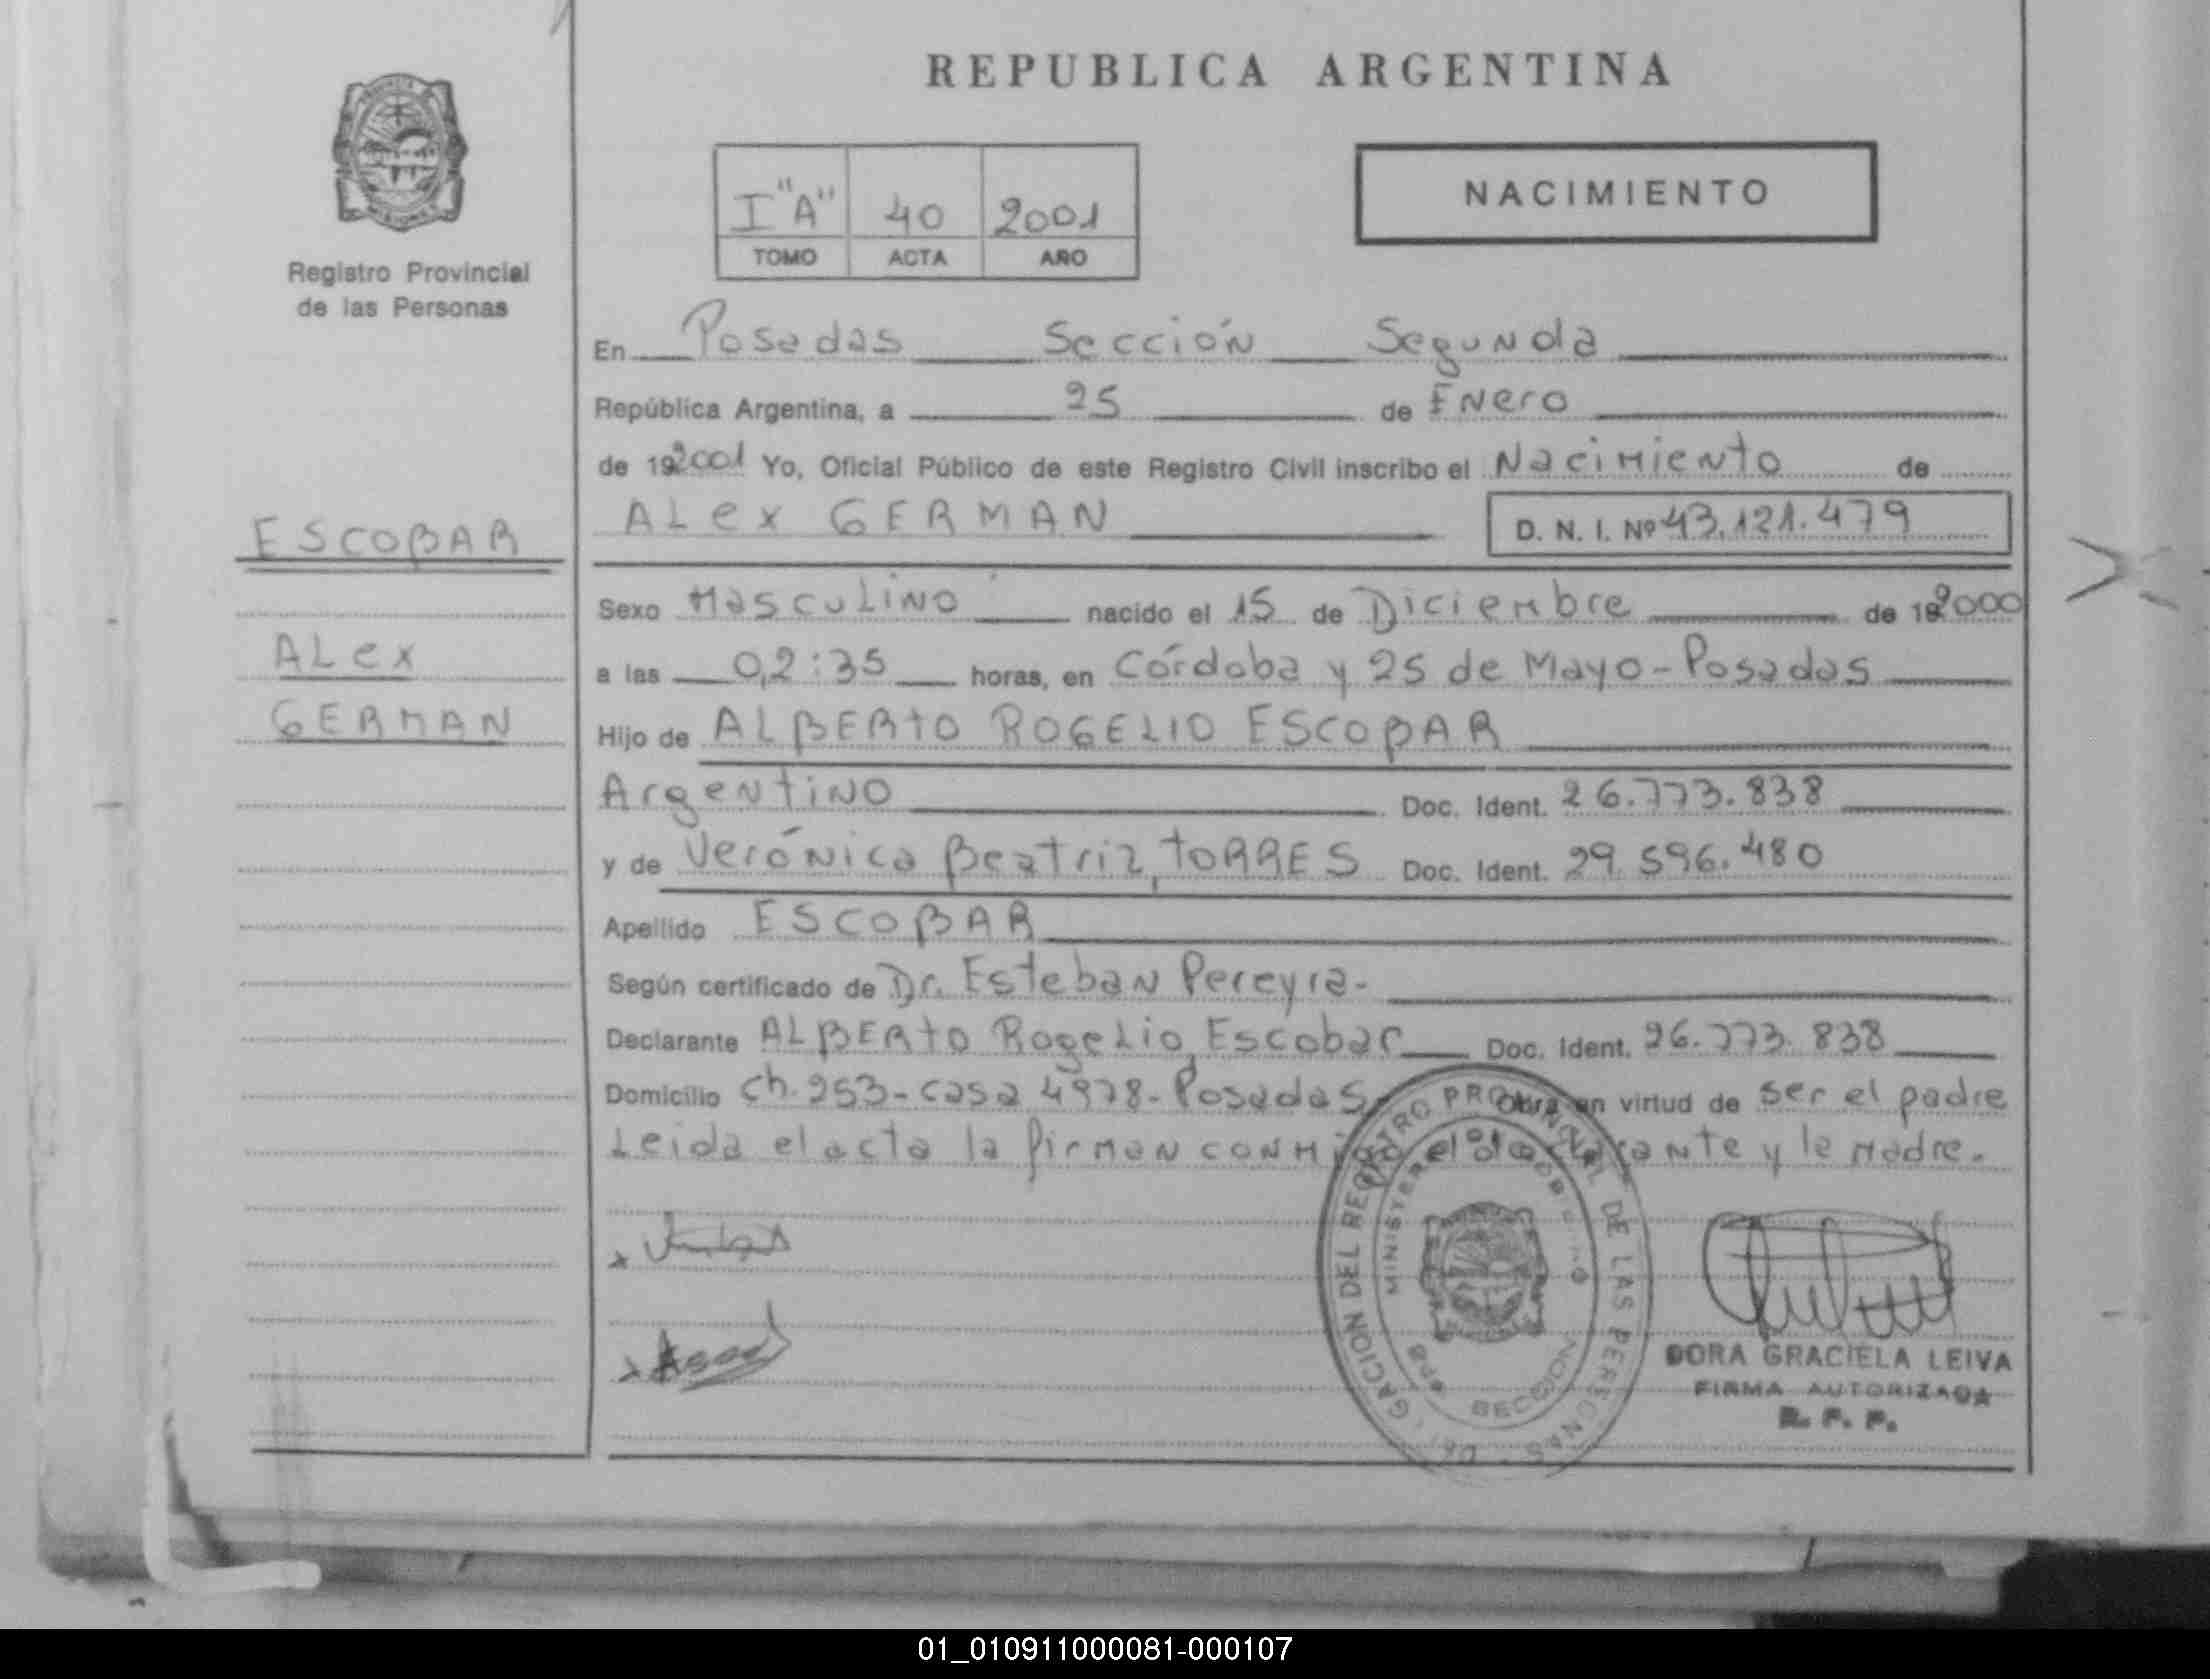 REPUBLICA ARGENTINA
Registro Provincial
de las Personas
I "A" 40 2001
TOMO ACTA AÑO
NACIMIENTO
En Posadas Sección Segunda
República Argentina, a 25 de Enero
de 192001 Yo, Oficial Público de este Registro Civil inscribo el Nacimiento de
ALex GERMAN D. N. I. Nº 43.121.479
ESCOBAR
ALex
GERMAN
Sexo Masculino nacido el 15 de Diciembre de 192000
a las 0,2:35 horas, en Córdoba y 25 de Mayo-Posadas
Hijo de ALBERTO ROGELIO ESCOBAR
Argentino Doc. Ident. 26.773.838
y de Verónica Beatriz, TORRES Doc. Ident. 29.596.480
Apellido ESCOBAR
Según certificado de Dr. Esteban Pereyra-
Declarante ALBERTO Rogelio, Escobar Doc. Ident. 26.773.838
Domicilio Ch. 253-casa 4978-Posadas Obra en virtud de ser el padre
Leida el acta la firman conmigo el declarante y la Madre.
DELEGACION DEL REGISTRO PROVINCIAL DE LAS PERSONAS
SECCION
DORA GRACIELA LEIVA
FIRMA AUTORIZADA
R. P. P.
01_010911000081-000107